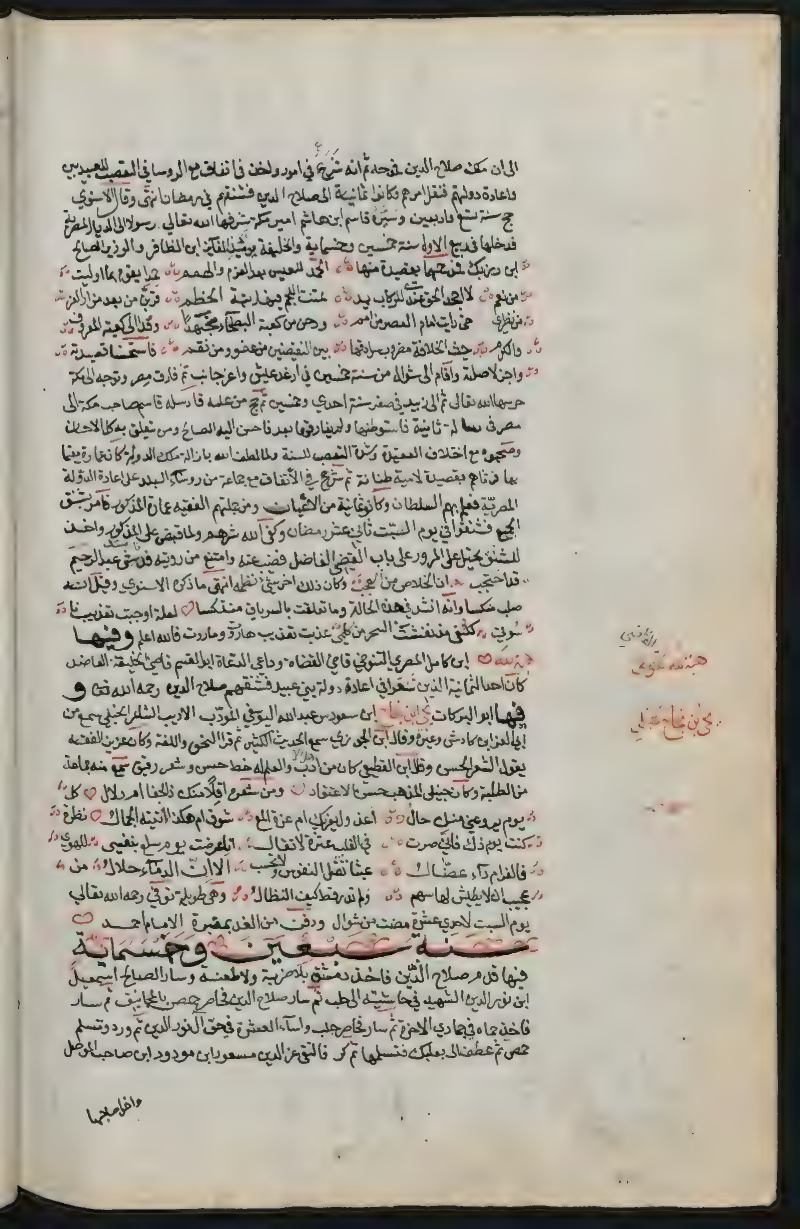 الى ان ملك صلاح الدين فمدحه ثم انه شرع في امور واخذ في اتفاق مع الروسا في التعصب للعبيديين
واعادة دولتهم فنقل امرهم وكانوا ثمانية الى صلاح الدين فشنقهم في رمضان انتهى وقال الاسنوي
حج سنة تسع واربعين وسيره قاسم ابن هاشم امير مكة شرفها الله تعالى رسولا الى الديار المصرية
فدخلها في ربيع الاول سنة خمسين وخمسماية والخليفة يومئذ الفائز ابن الظافر والوزير الصالح
ابن رزيك فمدحهما بقصيدة منها الحمد للعيس بعد العزم والهمم حمدا يقوم بما اوليت
من نعم لا اجحد الحق عندي للركاب يد تمنت اللجم فيها رتبة الخطم قربن من بعد مزار العز
من نظري حتى رايت امام العصر من امم ورحن من كعبة البطحاء مجتهدا وفدا الى كعبة المعروف
والكرم حيث الخلافة مضروب سرادقها بين النقيضين من عفو ومن نقم فاستحسنا قصيدته
واجزلا صلته واقام الى شوال من سنة خمسين في ارغد عيش واعز جانب ثم فارق مصر وتوجه الى مكة
حرسها الله تعالى ثم الى زبيد في صفر سنة احدى وخمسين ثم حج من عامه فارسله قاسم صاحب مكة الى
مصر في رسالة ثانية فاستوطنها ولم يفارقها بعد فاحسن اليه الصالح ومن يتعلق به كل الاحسان
وصحبوه مع اختلاف العقيدة وشدة التعصب للسنة ولما لطف الله بازالة ملك الدولة كان عمارة مقيما
بها فرثاهم بقصيدة لامية طنانة ثم شرع في الاتفاق مع جماعة من روساء البلد على اعادة الدولة
المصرية فعلم بهم السلطان وكانوا ثمانية من الاعيان ومن جملتهم الفقيه عمارة المذكور فامر بشنق
الجميع فشنقوا في يوم السبت ثاني عشر رمضان وكفى الله شرهم ولما قبض على المذكور واخذ
للشنق تحيل على المرور على باب القاضي الفاضل فغيب عنه وامتنع من رويته فانشد عبد الرحيم
قد احتجب ان الخلاص من العجب وكان ذلك اخر شئ نظمه انتهى ما ذكره الاسنوي وقيل انه
صلب منكسا وانه انشد في هذه الحالة وما تعلقت بالسرياق منتكسا لعلة اوجبت تعذيب نا
سوتي لكنني مذ نفثت السحر من كلمي عذبت تعذيب هاروت وماروت فالله اعلم وفيها
هبة الله ابن كامل المصري التنوخي قاضي القضاة وداعي الدعاة ابو القاسم قاضي الخليفة العاضد
كان احد الثمانية الذين شعروا في اعادة دولة بني عبيد فشنقهم صلاح الدين رحمه الله تعالى و
فيها ابو البركات يحيى ابن نجاح ابن سعود بن عبد الله اليوسفي المؤدب الاديب الشاعر الحنبلي سمع من
ابي العز ابن كادش وغيره وقال ابن الجوزي سمع الحديث الكثير ثم قرا النحو واللغة وكان غزير الفقه
يقول الشعر الحسن وقال ابن القطيعي كان من اهل الادب والعلم له خط حسن وشعر رقيق سمع منه جماعة
من الطلبة وكان حنبلي المذهب حسن الاعتقاد ومن شعره اقلا منك ذا الجفا ام دلال كل
يوم يروعني منك حال اعذول يعزيك ام عزة المع شوق ام هكذا التيه الجمال نظرة
كنت يوم ذاك فاني صرت في القلب عثرة لا تقال اترعرضت يوم سلع بنفسي للهوى
فالغرام داء عضال عبثا تقتل النفوس ولا تحسب الا ان الدماء حلال من
عجيب ان لا تطيش لها سهم ولم تدر قط كيف النضال وهي طويلة توفي رحمه الله تعالى
يوم السبت لاحدى عشرة مضت من شوال ودفن من الغد بمقبرة الامام احمد
سنة سبعين وخمسماية
فيها قدم صلاح الدين فاخذ دمشق بلا ضربة ولا طعنة وسار الصالح اسمعيل
ابن نور الدين الشهيد في حاشيته الى حلب ثم سار صلاح الدين فحاصر حمص بالمجانيق ثم سار
فاخذ حماه في جمادي الاخرة ثم سار فحاصر حلب واساء العشرة في حق ال نور الدين ثم رد وتسلم
حمص ثم عطف الى بعلبك فتسلمها ثم كر فالتقى عز الدين مسعود ابن مودود ابن صاحب الموصل
هبة الله تنوخي
يحيى بن نجاح حنبلي